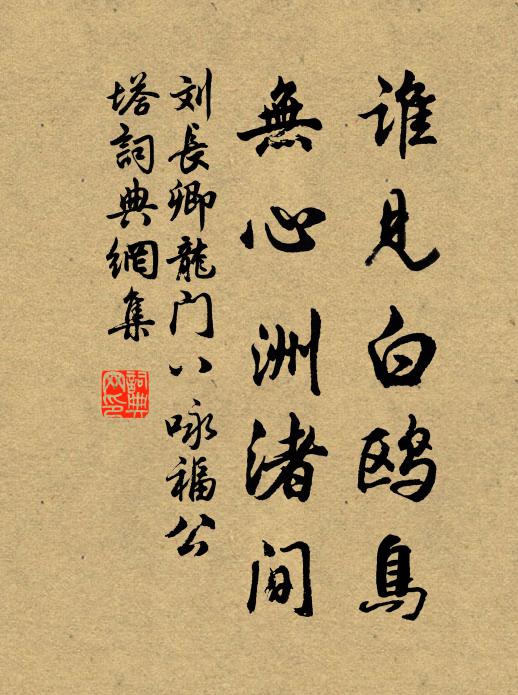 谁見白鸥鳥
無心洲渚間
刘長卿龍门八咏福公
塔詞典網集
詞典
网印